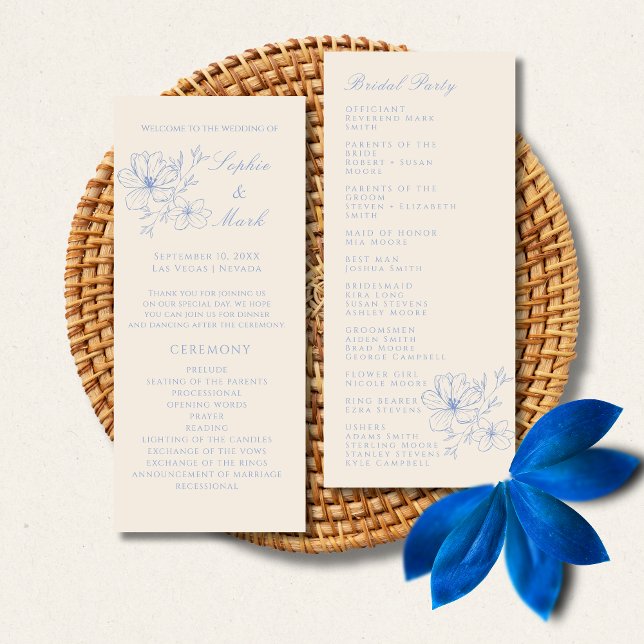 Welcome to the wedding of
Sophie
&
Mark
September 10, 20XX
Las Vegas | Nevada
Thank you for joining us
on our special day, we hope
you can join us for dinner
and dancing after the ceremony
CEREMONY
PRELUDE
SEATING OF THE PARENTS
PROCESSIONAL
OPENING WORDS
PRAYER
READING
LIGHTING OF THE CANDLES
EXCHANGE OF THE VOWS
EXCHANGE OF THE RINGS
ANNOUNCEMENT OF MARRIAGE
RECESSIONAL
Bridal Party
OFFICIANT
Reverend Mark
Smith
PARENTS OF THE
BRIDE
Robert + Susan
Moore
PARENTS OF THE
GROOM
Steven + Elizabeth
Smith
MAID OF HONOR
Mia Moore
BEST MAN
Joshua Smith
BRIDESMAID
Kira Long
Susan Stevens
Ashley Moore
GROOMSMEN
Aiden Smith
Brad Moore
George Campbell
FLOWER GIRL
Nicole Moore
RING BEARER
Ezra Stevens
USHERS
Adams Smith
Sterling Moore
Stanley Stevens
Kyle Campbell